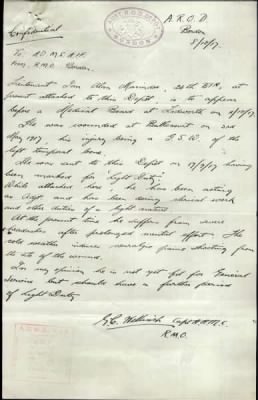 A.R.O.D.
Bordon
8/10/17.
Confidential
To A.D.M.S. A.I.F.
From R.M.O. Bordon.
Lieutenant Ian Alan Marinder, 24th BTN, at
present attached to this Depot is to appear
before a Medical Board at Tidworth on 9/10/17.
He was wounded at Bullecourt on 3rd
May 1917 his injury being a G.S.W. of the
left temporal bone.
He was sent to this Depot on 13/9/17 having
been marked for "Light Duty".
While attached here he has been acting
as Adjt and has been doing clerical work
and other duties of a light nature.
At the present time he suffers from severe
headaches after prolonged mental effort. The
cold weather induces neuralgic pains shooting from
the site of the wound.
In my opinion he is not yet fit for General
Service but should have a further period
of Light Duty.
Capt A.A.M.C.
R.M.O.